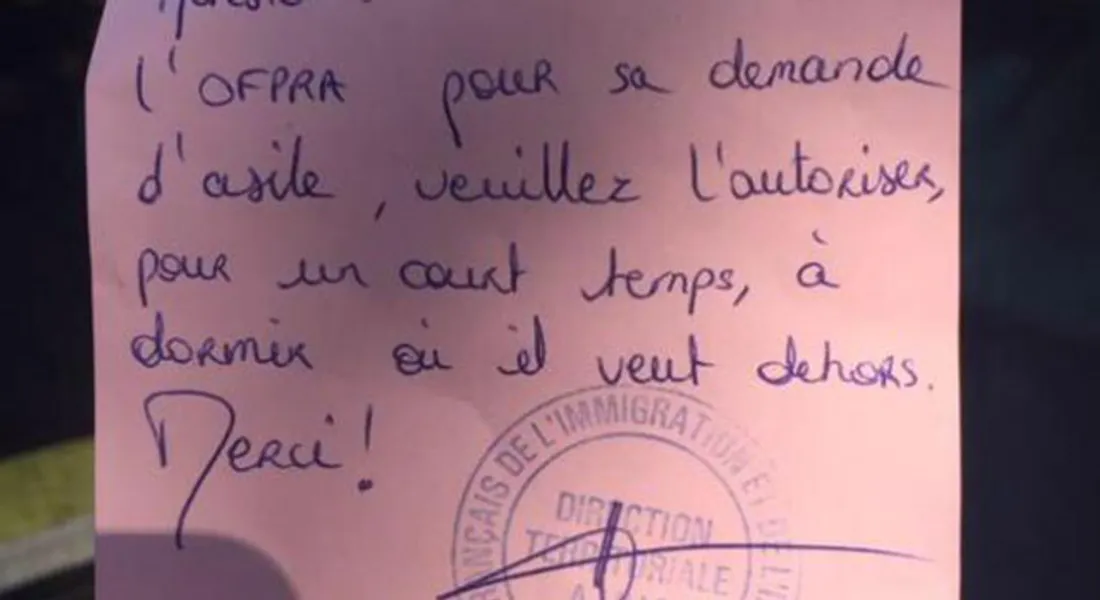 l'OFPRA pour sa demande
d'asile, veuillez l'autoriser,
pour un court temps, à
dormir où il veut dehors.
Merci !
FRANÇAIS DE L'IMMIGRATION ET DE L'I
DIRECTION
TERRITORIALE